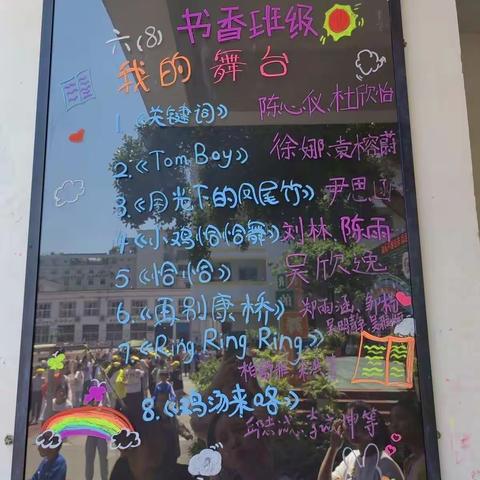 六(8) 书香班级
我的舞台
1.《关键词》 陈心仪、杜欣怡
2.《Tom Boy》 徐娜、袁榕蔚
3.《月光下的凤尾竹》 尹思
4.《小鸡恰恰舞》 刘林、陈雨
5.《恰恰》 吴欣逸
6.《再别康桥》 郑雨涵、邹
吴明静、吴
7.《Ring Ring Ring》
8.《鸡汤来咯》
等